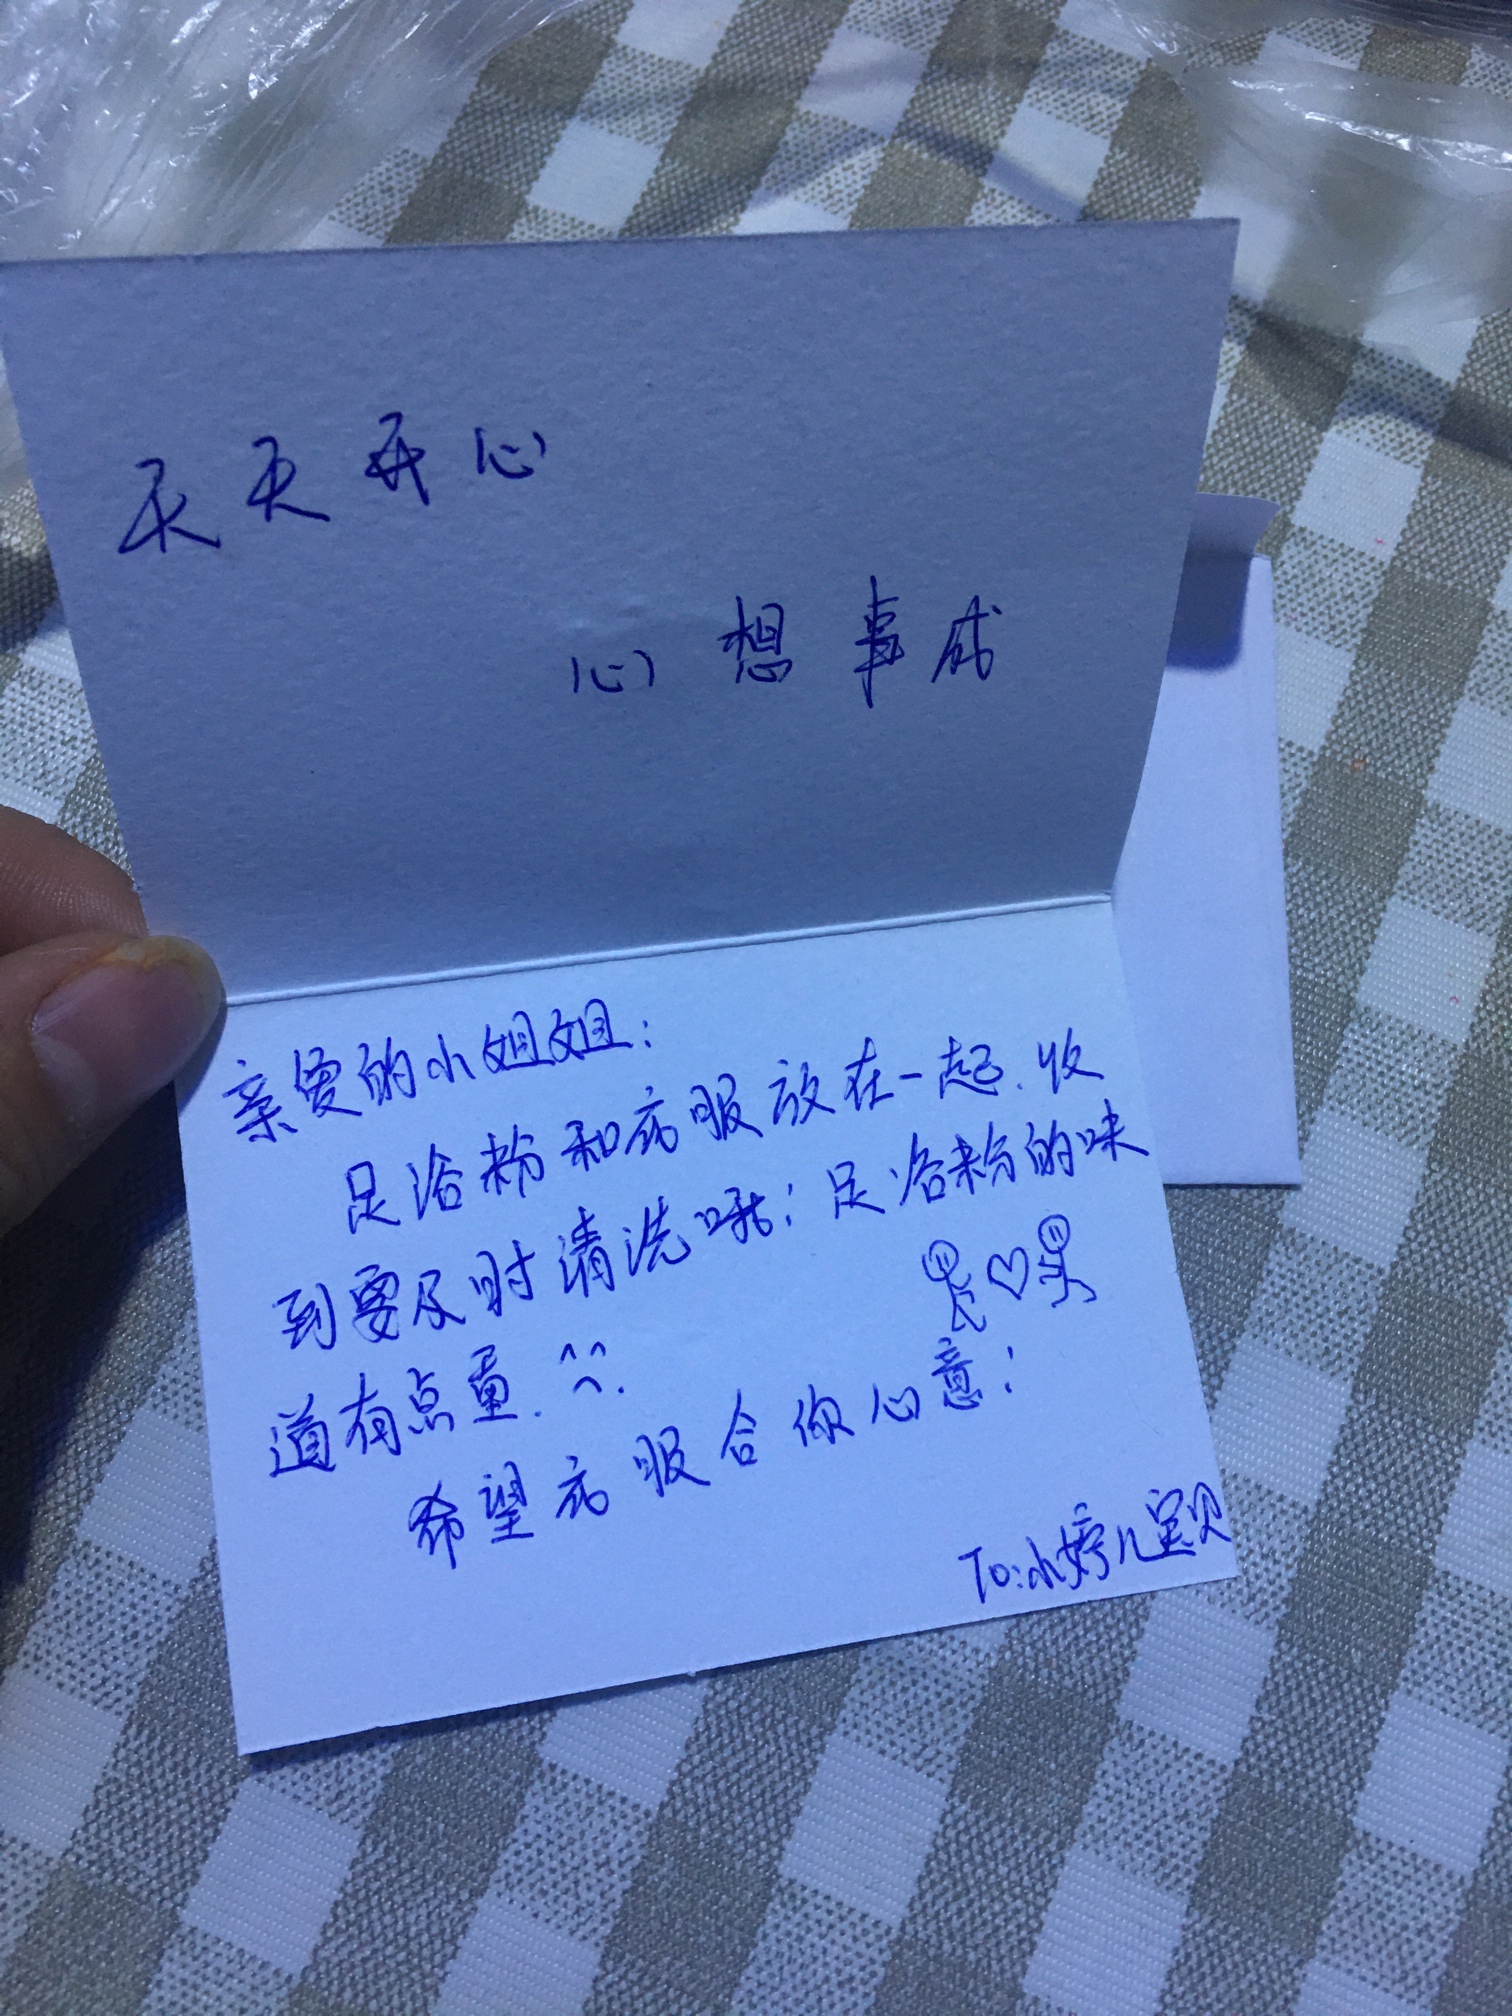 天天开心
心想事成
亲爱的小姐姐:
足浴粉和衣服放在一起.收
到要及时清洗哦!足浴粉的味
道有点重.^^
希望衣服合你心意!
To:小婷儿宝贝